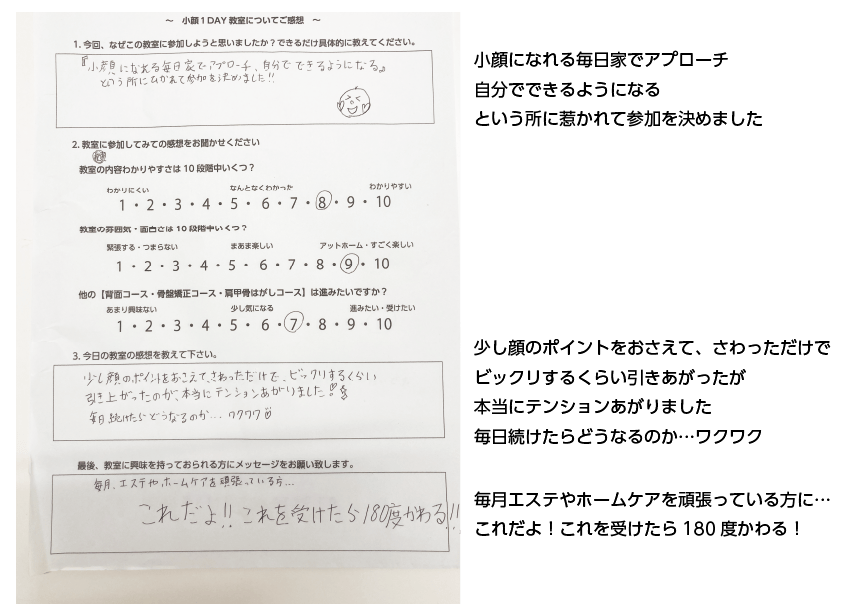 ～ 小顔1DAY教室についてご感想 ～
1. 今回、なぜこの教室に参加しようと思いましたか？できるだけ具体的に教えてください。
『小顔になれる毎日家でアプローチ、自分でできるようになる』
という所にひかれて参加を決めました!!
2. 教室に参加してみての感想をお聞かせください
教室の内容わかりやすさは10段階中いくつ？
わかりにくい なんとなくわかった わかりやすい
1・2・3・4・5・6・7・8・9・10
教室の雰囲気・面白さは10段階中いくつ？
緊張する・つまらない まあま楽しい アットホーム・すごく楽しい
1・2・3・4・5・6・7・8・9・10
他の【背面コース・骨盤矯正コース・肩甲骨はがしコース】は進みたいですか？
あまり興味ない 少し気になる 進みたい・受けたい
1・2・3・4・5・6・7・8・9・10
3. 今日の教室の感想を教えて下さい。
少し顔のポイントをおさえて、さわっただけで、ビックリするくらい
引き上がったのが、本当にテンションあがりました!!
毎日続けたらどうなるのか…ワクワク
最後、教室に興味を持っておられる方にメッセージをお願い致します。
毎月、エステやホームケアを頑張っている方…
これだよ!! これを受けたら180度かわる!!
小顔になれる毎日家でアプローチ
自分でできるようになる
という所に惹かれて参加を決めました
少し顔のポイントをおさえて、さわっただけで
ビックリするくらい引きあがったが
本当にテンションあがりました
毎日続けたらどうなるのか…ワクワク
毎月エステやホームケアを頑張っている方に…
これだよ！これを受けたら180度かわる！